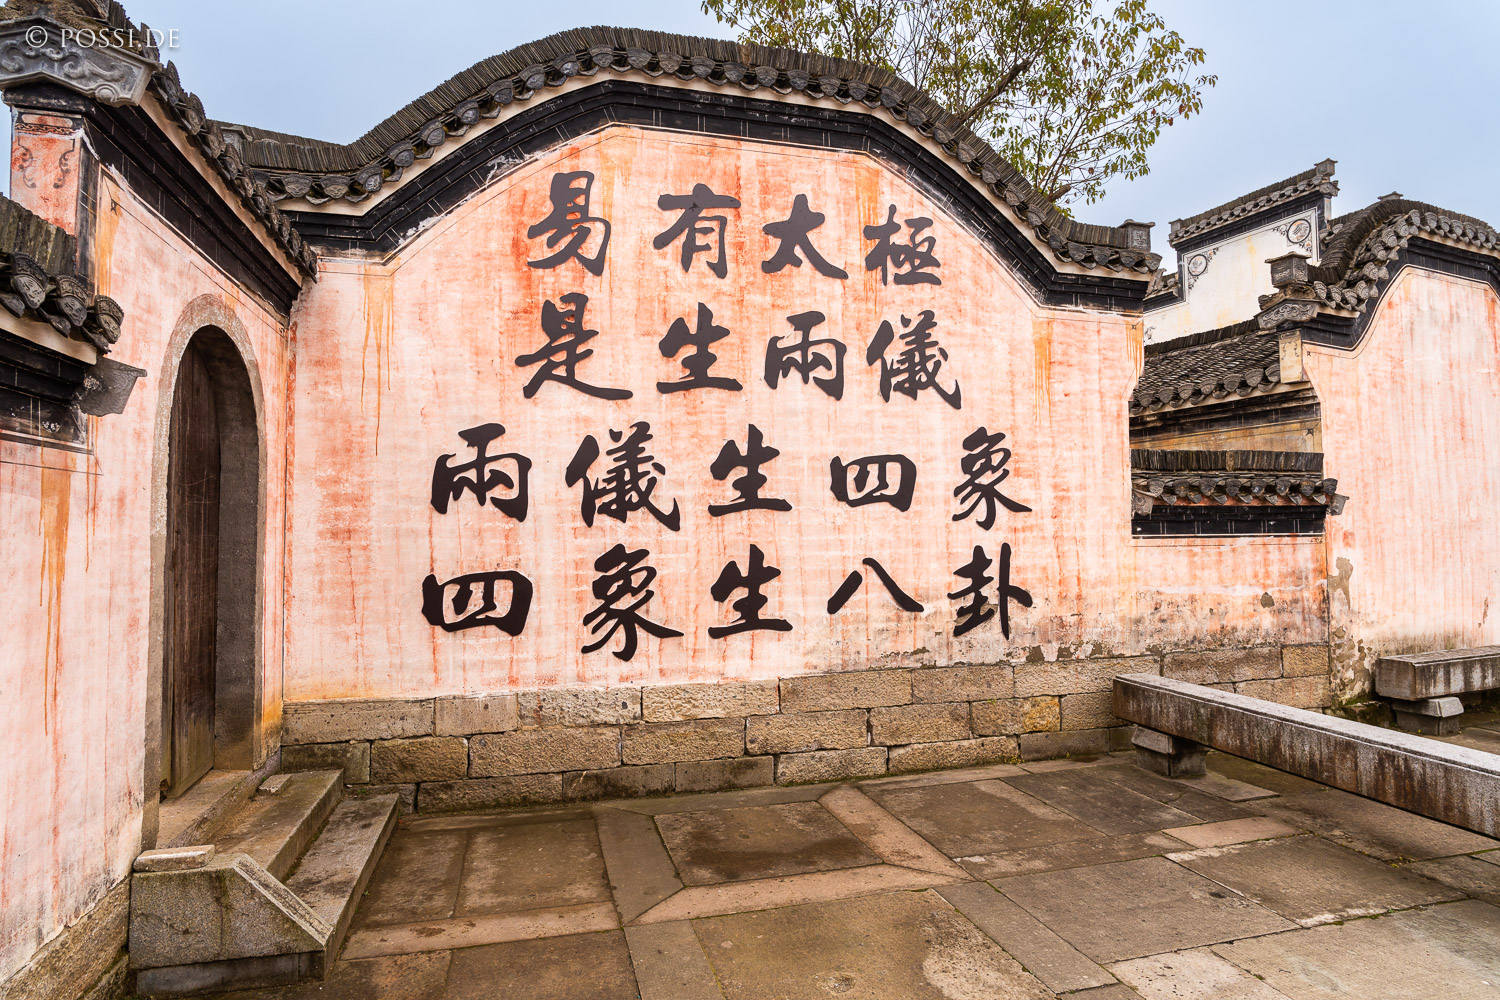 © POSSI.DE
易有太極
是生兩儀
兩儀生四象
四象生八卦